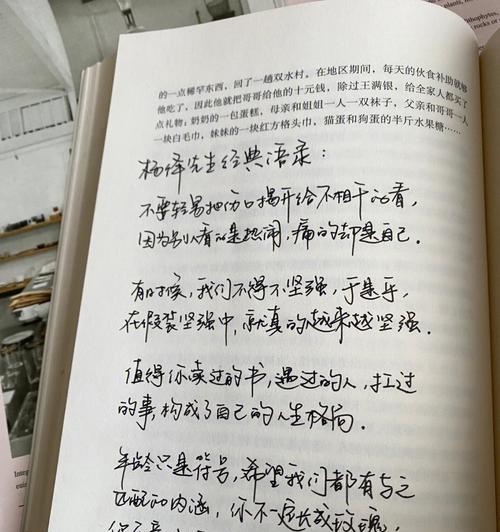 hophytes,
lants, in
rocks or
的一点稀罕东西，回了一趟双水村。在地区期间，每天的伙食补助就够
他吃了，因此他就把哥哥给他的十元钱，除过王满银，给全家人都买了
点礼物：奶奶的一包蛋糕，母亲和姐姐一人一双袜子，父亲和哥哥一人
一块白毛巾，妹妹的一块红方格头巾，猫蛋和狗蛋的半斤水果糖……
杨绛先生经典语录：
不要轻易把伤口揭开给不相干的看，
因为别人看的是热闹，痛的却是自己．
有时候，我们不得不坚强，于是乎，
在假装坚强中，就真的越来越坚强．
值得你读过的书，遇过的人，扛过
的事，构成了自己的人生格局．
年龄只是符号，希望我们都有与之
匹配的内涵，你不一定长成玫瑰，
Integ
cuin